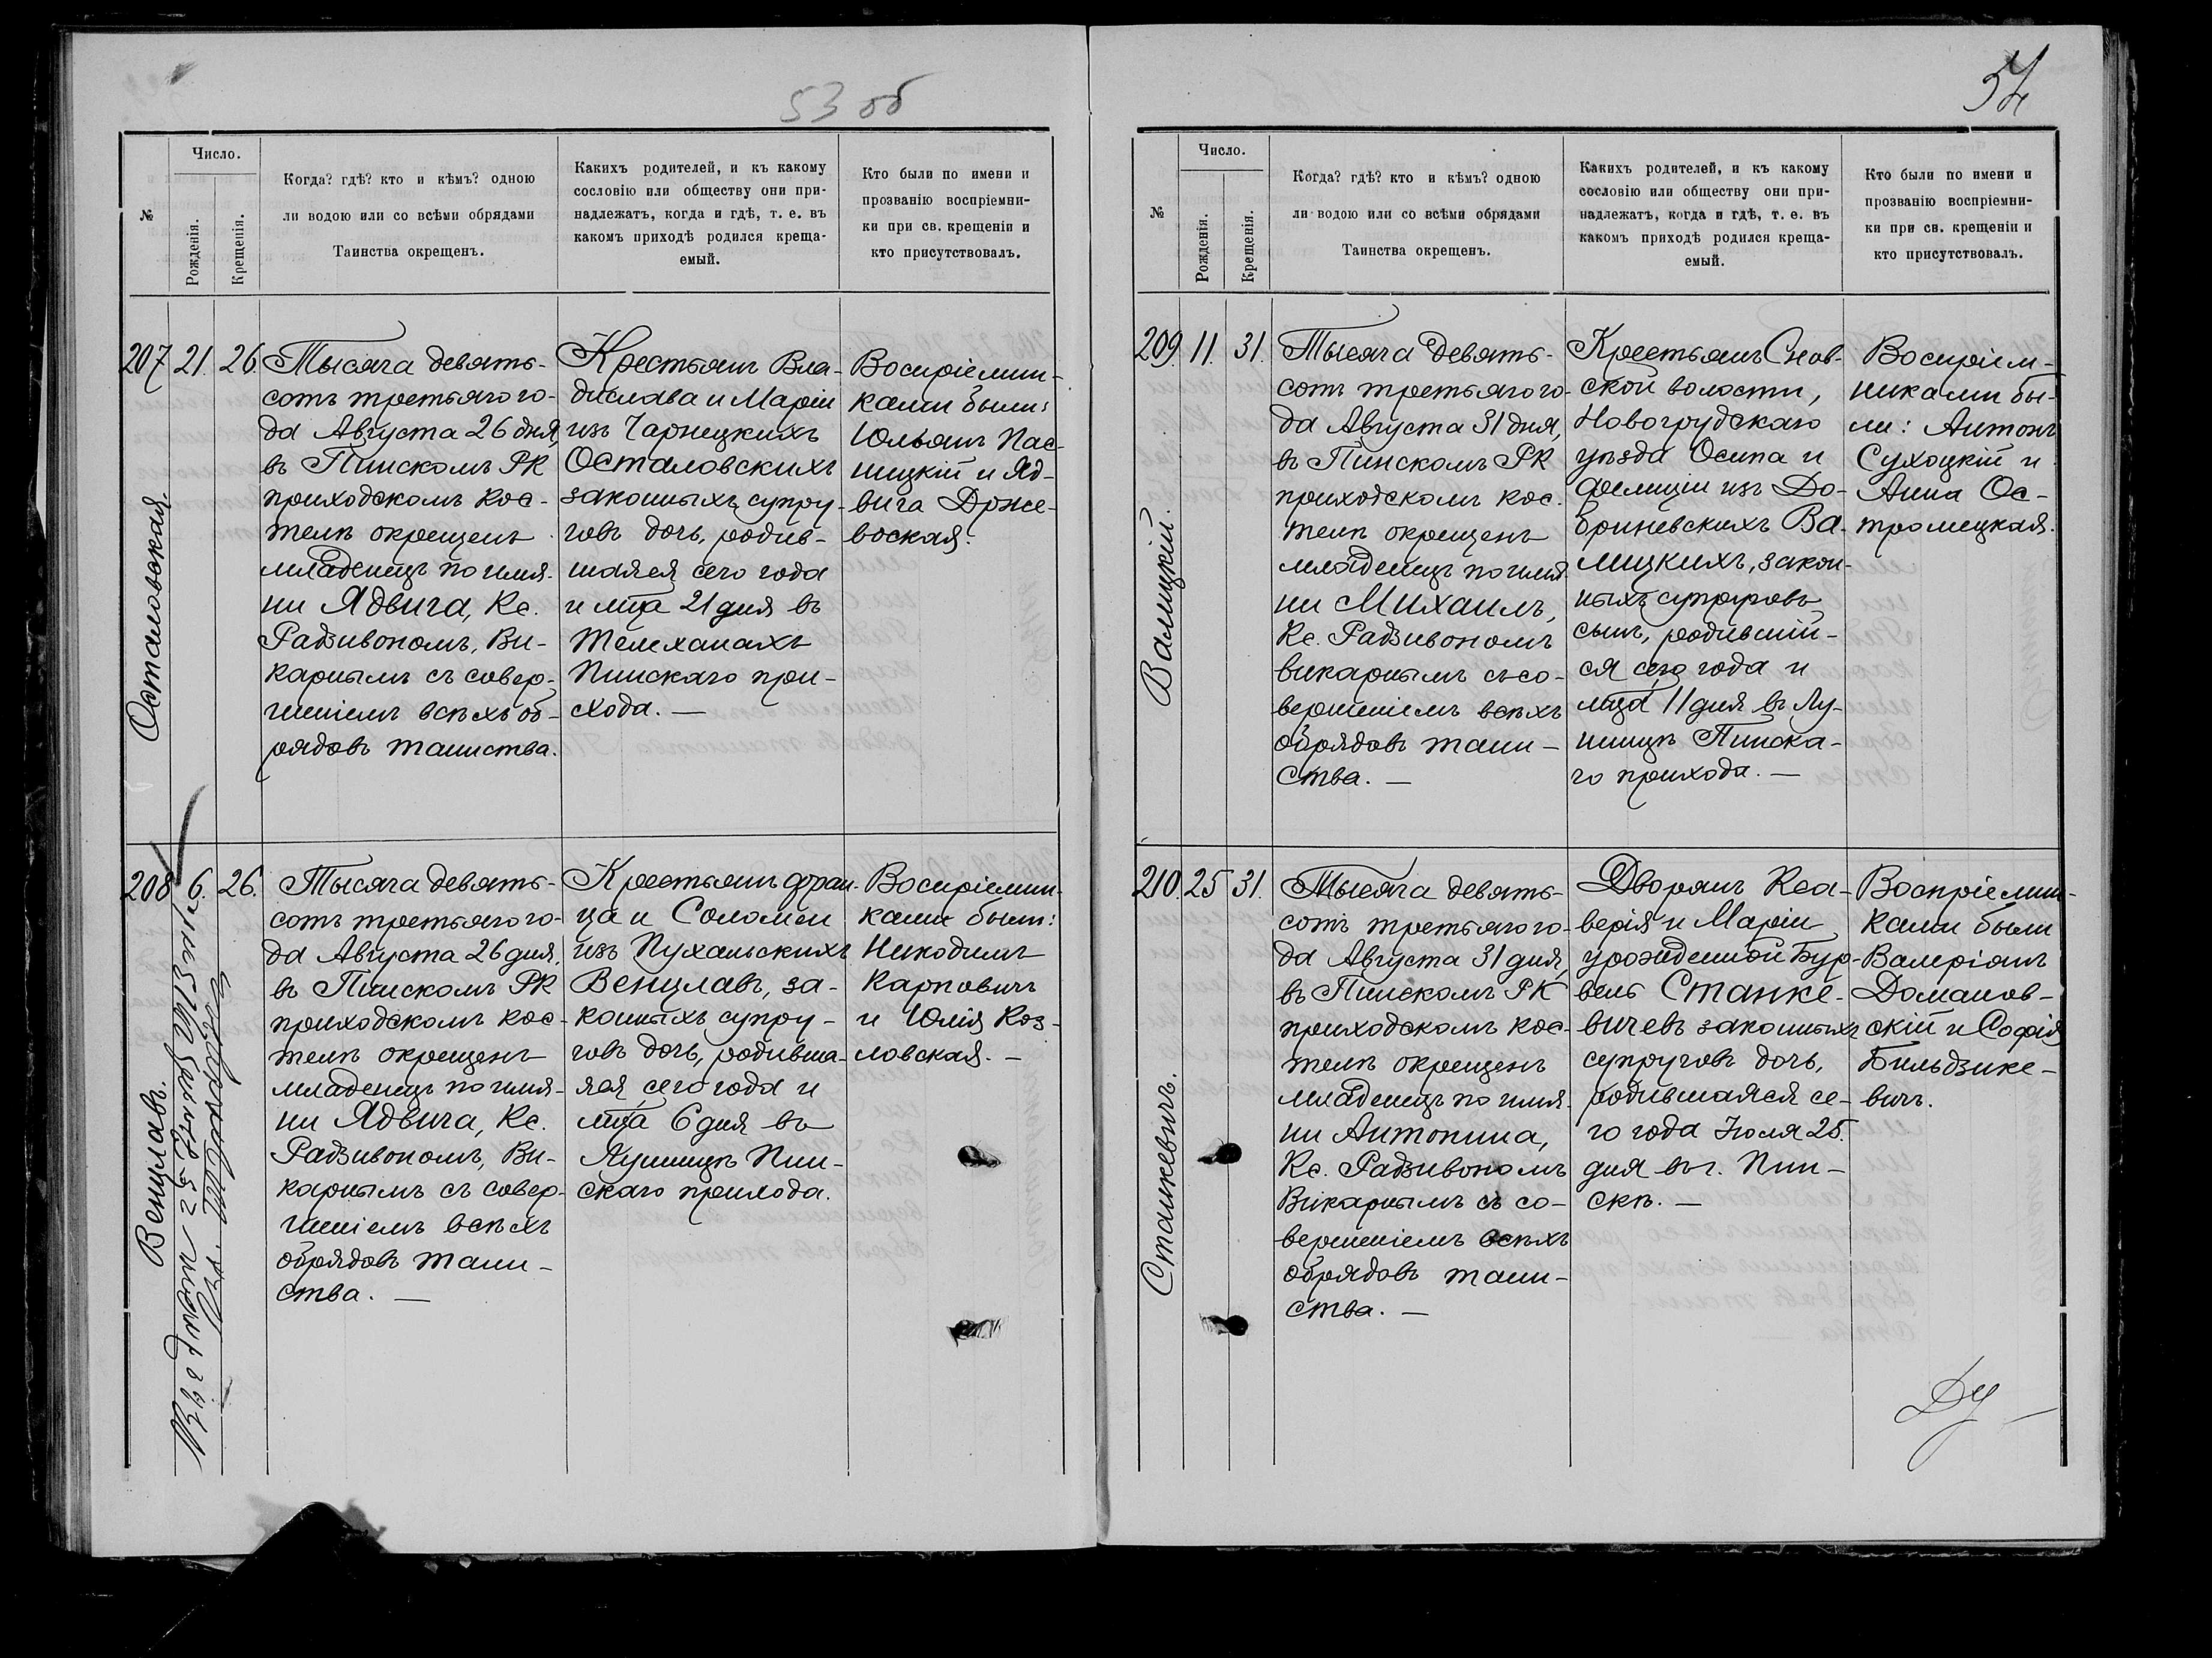 53 об
№
Число.
Рожденія.
Крещенія.
Когда? гдѣ? кто и кѣмъ? одною
ли водою или со всѣми обрядами
Таинства окрещенъ.
Какихъ родителей, и къ какому
сословію или обществу они при-
надлежатъ, когда и гдѣ, т. е. въ
какомъ приходѣ родился креща-
емый.
Кто были по имени и
прозванію воспріемни-
ки при св. крещеніи и
кто присутствовалъ.
207
21.
26.
Осталовская.
Тысяча девять-
сотъ третьяго го-
да Августа 26 дня,
въ Пинскомъ РК
приходскомъ кос-
телѣ окрещенъ
младенецъ по имя-
ни Ядвига, Кс.
Радзивономъ, Ви-
карнымъ съ совер-
шеніемъ всѣхъ об-
рядовъ таинства.
Крестьянъ Вла-
дислава и Маріи
изъ Чарнецкихъ
Осталовскихъ
законныхъ супру-
говъ дочь, родив-
шаяся сего года
и мца 21 дня въ
Телеханахъ
Пинскаго при-
хода. —
Воспріемни-
ками были:
Юльянъ Пас-
ницкій и Яд-
вига Држе-
воская.
208
6.
26.
Венцлавъ.
Тысяча девять-
сотъ третьяго го-
да Августа 26 дня,
въ Пинскомъ РК
приходскомъ кос-
телѣ окрещенъ
младенецъ по имя-
ни Ядвига, Кс.
Радзивономъ, Ви-
карнымъ съ совер-
шеніемъ всѣхъ
обрядовъ таин-
ства. —
Крестьянъ Фран-
ца и Соломеи
изъ Пухальскихъ
Венцлавъ, за-
конныхъ супру-
говъ дочь, родивша-
яся сего года и
мца 6 дня въ
Лунинцѣ Пин-
скаго прихода.
Воспріемни-
ками были:
Никодимъ
Карповичъ
и Юлія Коз-
ловская. —
54
№
Число.
Рожденія.
Крещенія.
Когда? гдѣ? кто и кѣмъ? одною
ли водою или со всѣми обрядами
Таинства окрещенъ.
Какихъ родителей, и къ какому
сословію или обществу они при-
надлежатъ, когда и гдѣ, т. е. въ
какомъ приходѣ родился креща-
емый.
Кто были по имени и
прозванію воспріемни-
ки при св. крещеніи и
кто присутствовалъ.
209.
11.
31.
Валицкій.
Тысяча девять-
сотъ третьяго го-
да Августа 31 дня,
въ Пинскомъ РК
приходскомъ кос-
телѣ окрещенъ
младенецъ по имя-
ни Михаилъ,
Кс. Радзивономъ
викарнымъ съ со-
вершеніемъ всѣхъ
обрядовъ таин-
ства. —
Крестьянъ Снов-
ской волости,
Новогрудскаго
уѣзда Осипа и
Фелиціи изъ До-
бриневскихъ Ва-
лицкихъ, закон-
ныхъ супруговъ
сынъ, родившій-
ся сего года и
мца 11 дня въ Лу-
нинцѣ Пинска-
го прихода. —
Воспріем-
никами бы-
ли: Антонъ
Сухоцкій и
Анна Ос-
тромецкая.
210.
25
31.
Станкевичъ.
Тысяча девять-
сотъ третьяго го-
да Августа 31 дня,
въ Пинскомъ РК
приходскомъ кос-
телѣ окрещенъ
младенецъ по имя-
ни Антонина,
Кс. Радзивономъ
Викарнымъ съ со-
вершеніемъ всѣхъ
обрядовъ таин-
ства. —
Дворянъ Кса-
верія и Маріи
урожденной Бур-
вель Станке-
вичевъ законныхъ
супруговъ дочь,
родившаяся се-
го года Іюля 25.
дня въ г. Пин-
скѣ. —
Воспріемни-
ками были
Валеріанъ
Доманов-
скій и Софія
Бильдзюке-
вичъ.